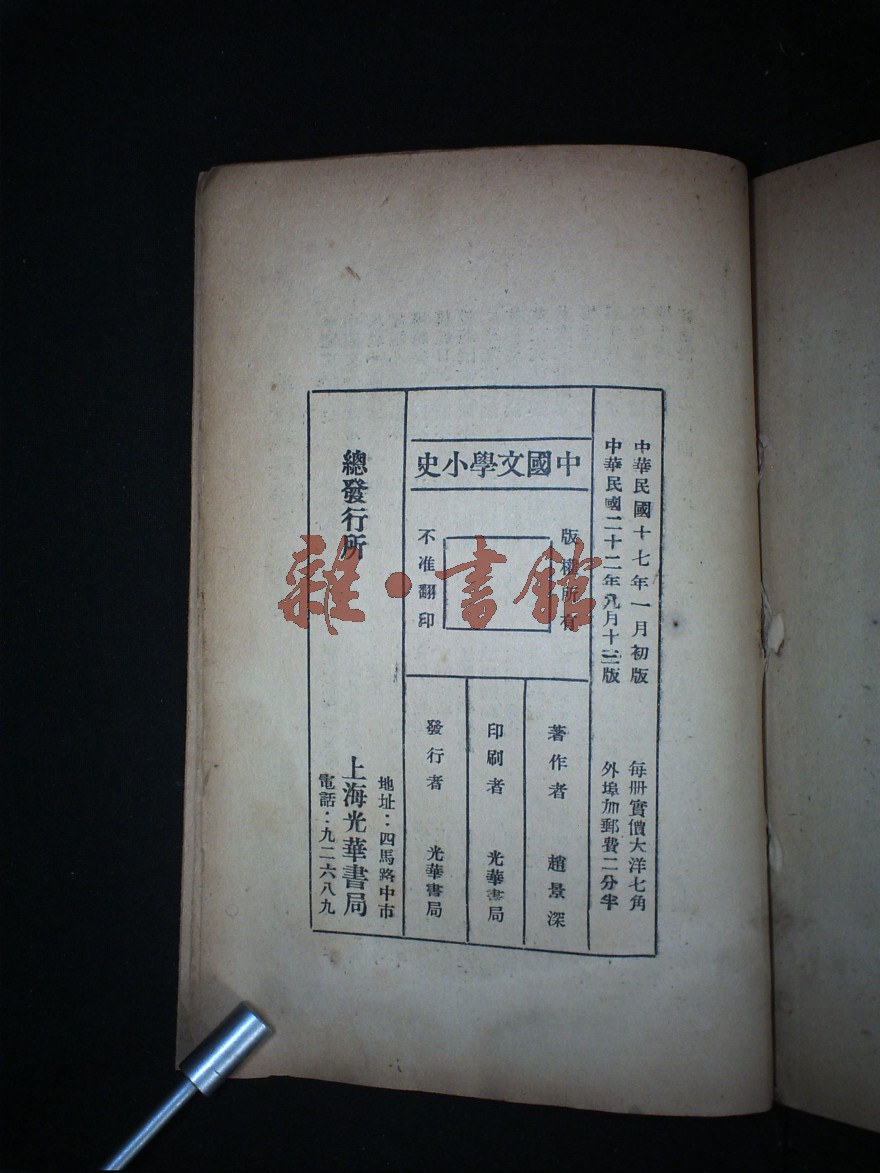 中華民國十七年一月初版
中華民國二十二年九月十三版
每册實價大洋七角
外埠加郵費二分半
中國文學小史
版權所有
不准翻印
著作者 趙景深
印刷者 光華書局
發行者 光華書局
總發行所
地址：四馬路中市
上海光華書局
電話：九二六八九
雜·書館